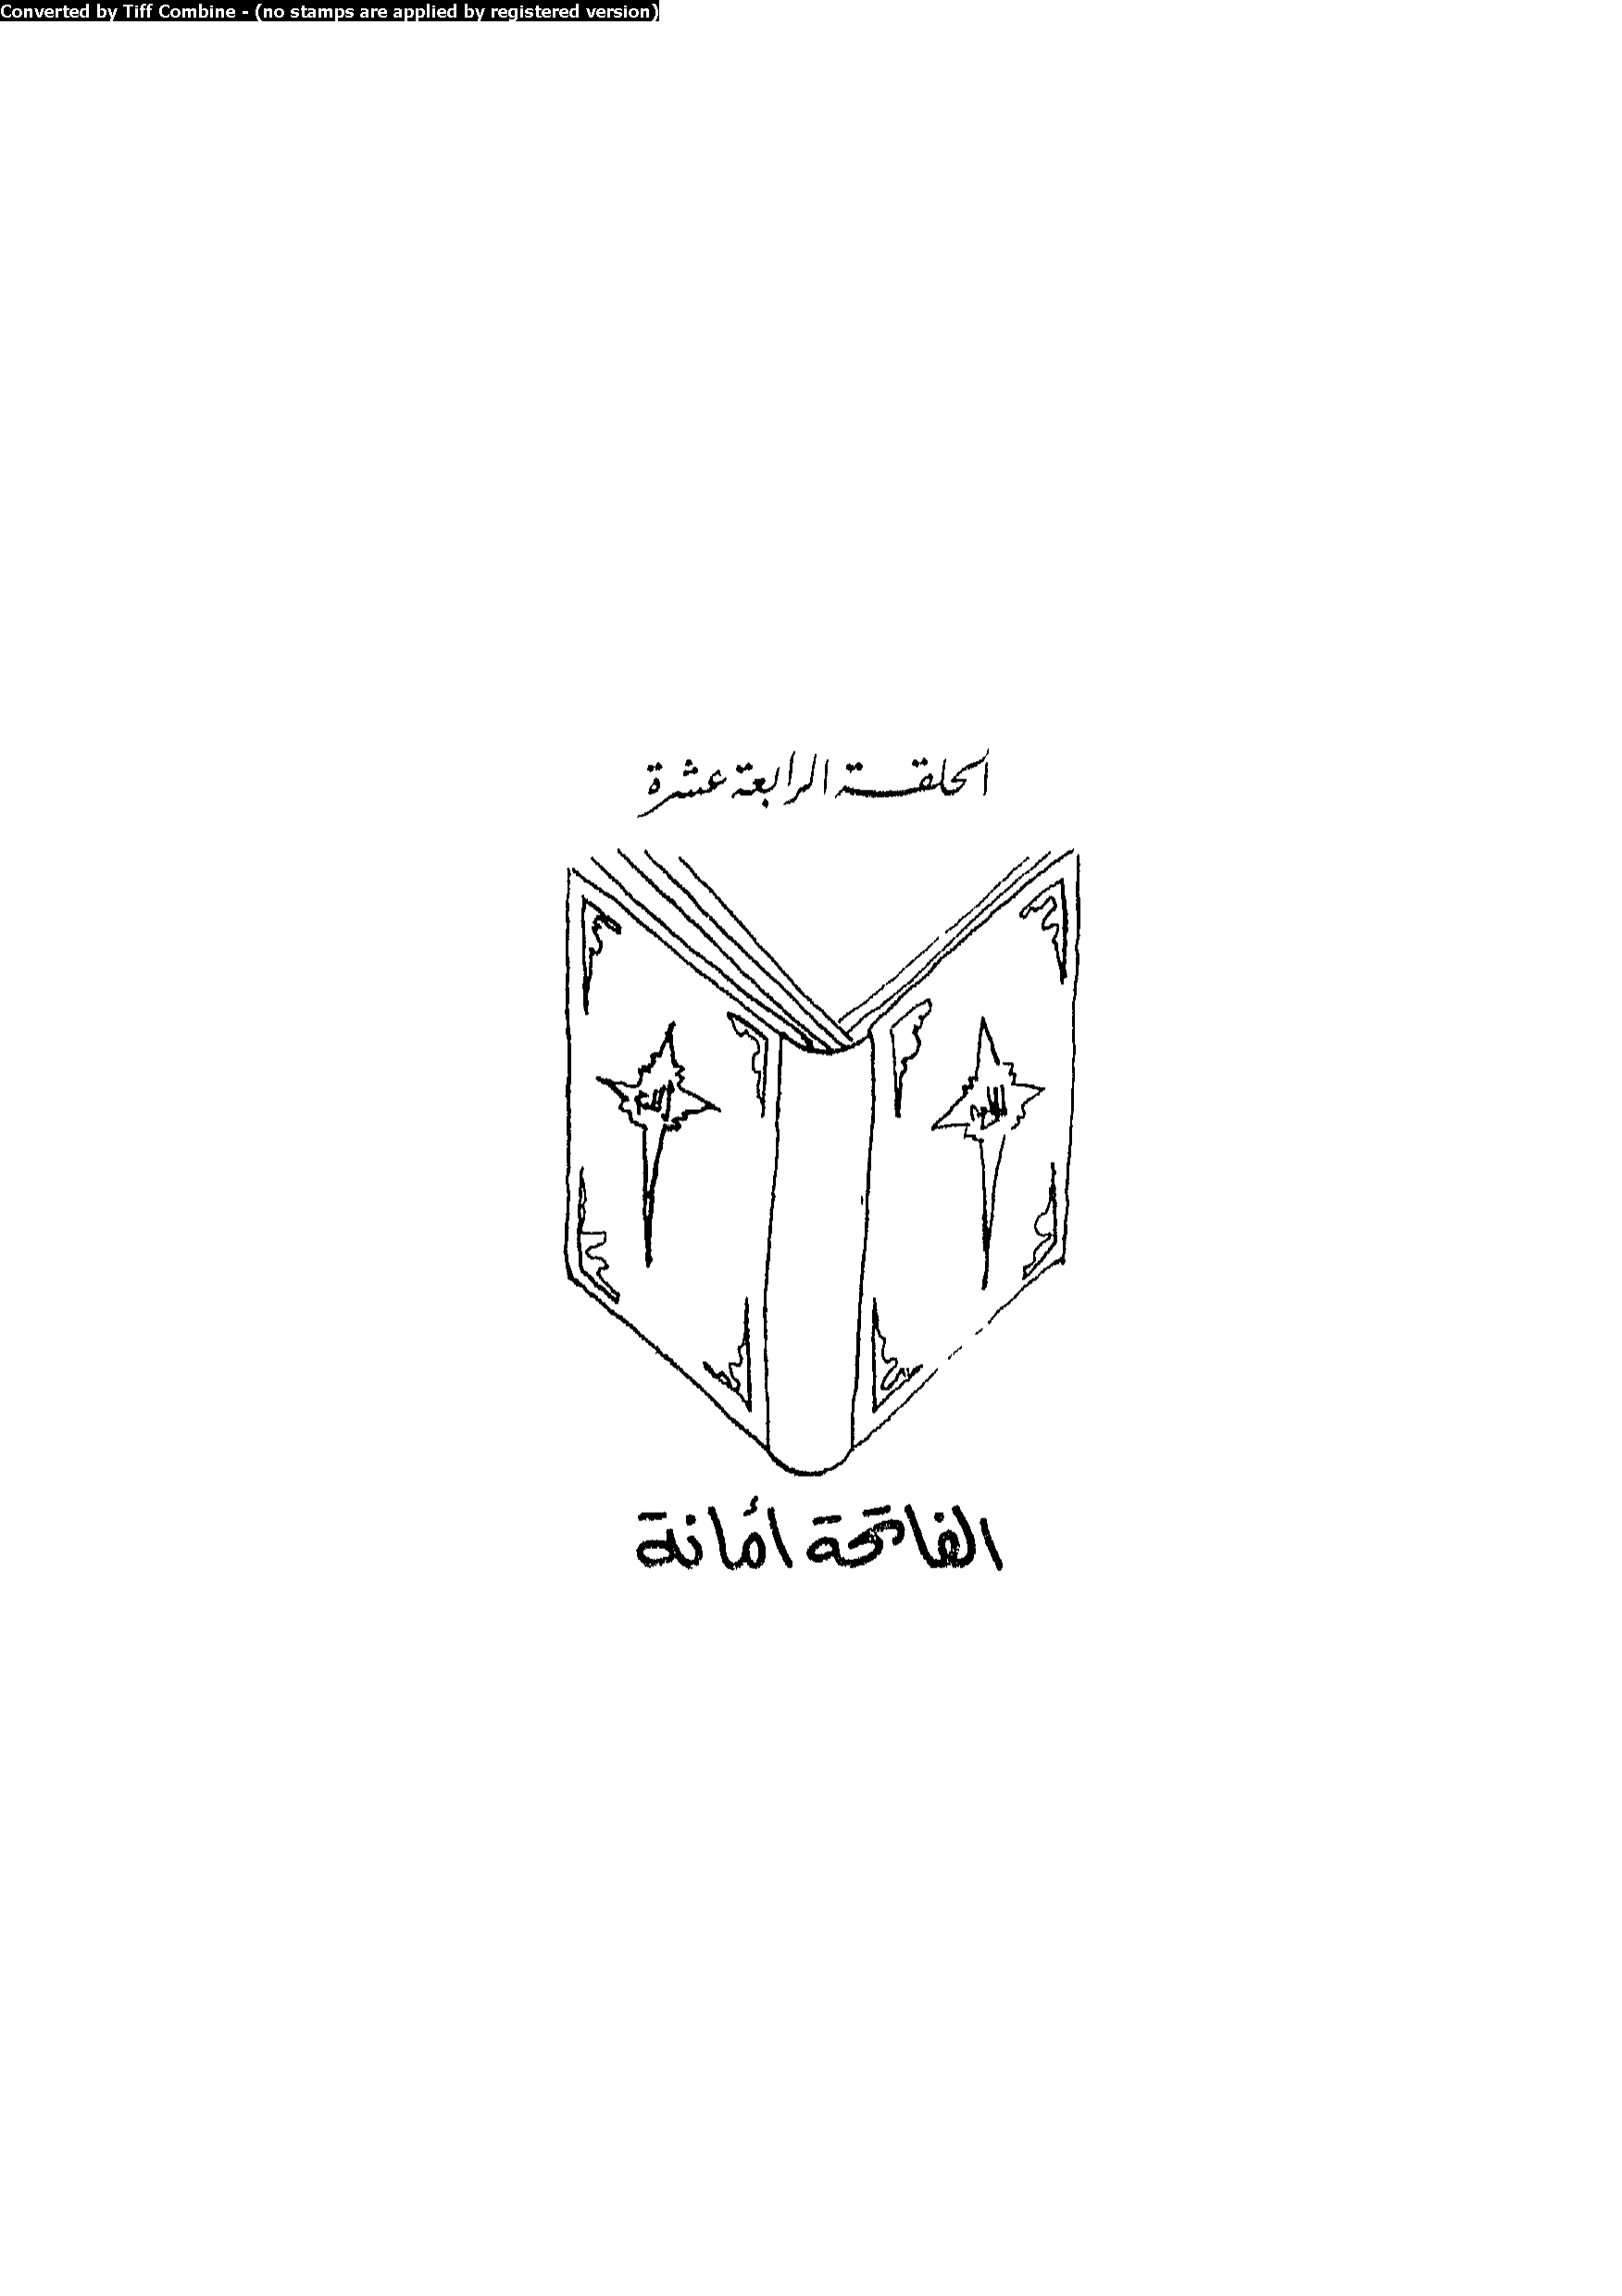 Converted by Tiff Combine - (no stamps are applied by registered version)
الحلقة الرابعة عشرة
الفاتحة أمانة